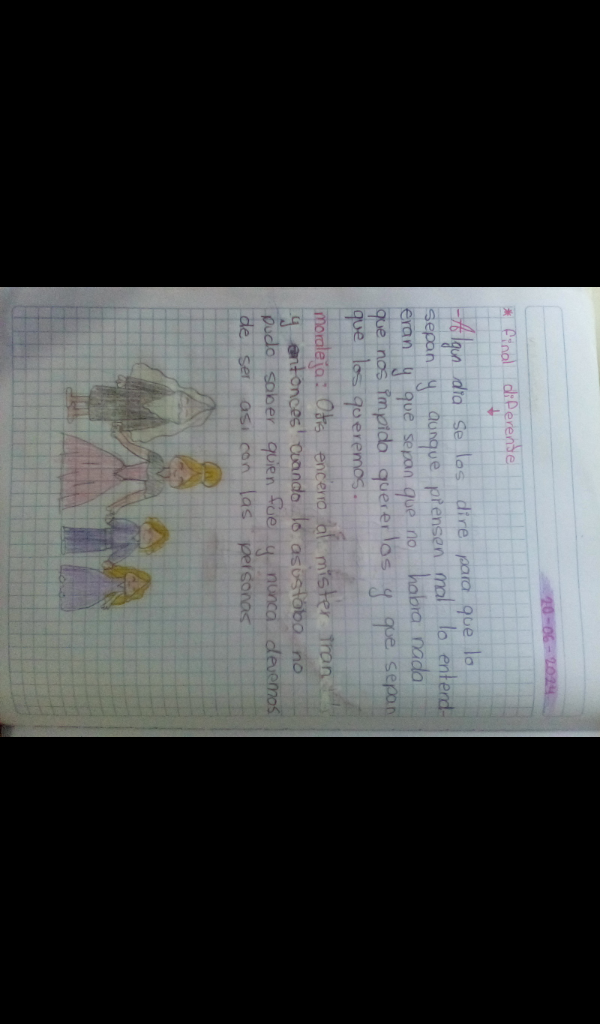 20-06-2024
* final diferente
-Algun dia se los dire para que lo
sepan y aunque piensen mal lo enterd-
eran y que sepan que no habra nada
que nos impida quererlos y que sepan
que los queremos.
moraleja: Otis encero al mister Iran
y entonces cuando lo asustaba no
pudo saber quien fue y nunca devemos
de ser asi con las personas